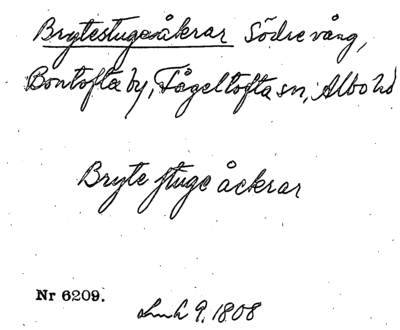 Brytestugeåkrar Södre vång,
Bontofta by, Fågeltofta sn, Albo hd
Bryte stuge åckrar
Nr 6209.
LmA 9. 1808